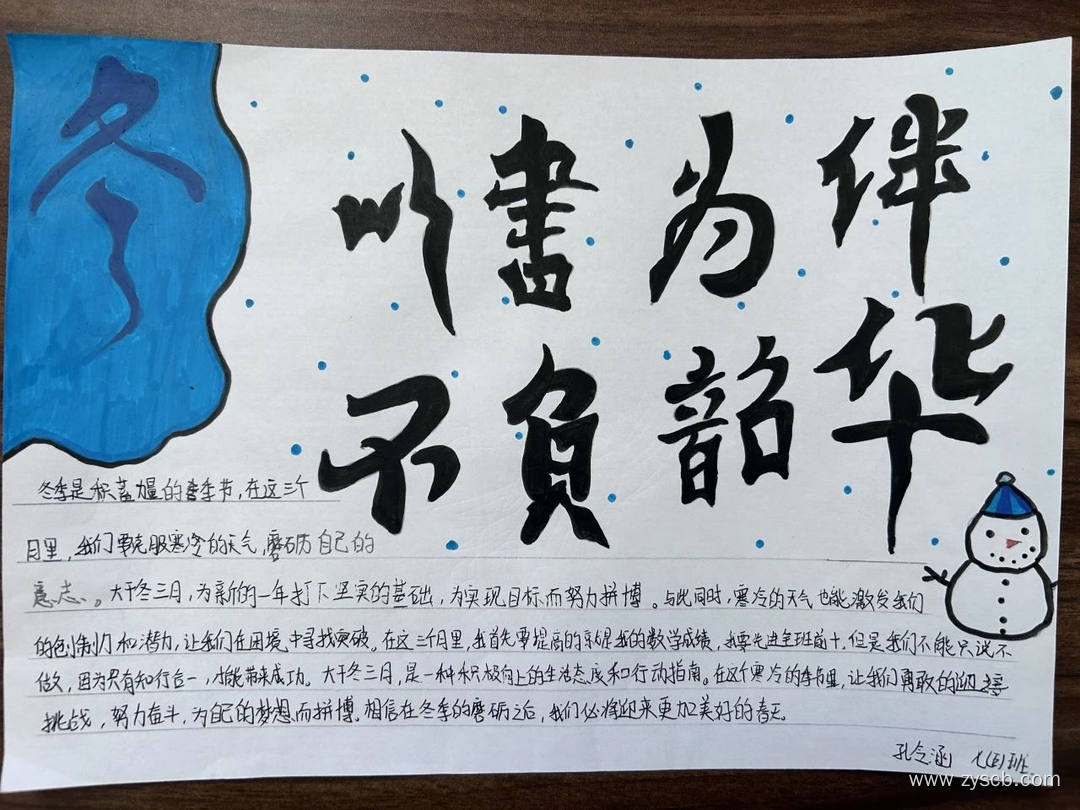 冬
以書为伴
不負韶华
冬季是积蓄力量的季节，在这三个
月里，我们要克服寒冷的天气，磨砺自己的
意志。大干冬三月，为新的一年打下坚实的基础，为实现目标而努力拼博。与此同时，寒冷的天气也能激发我们
的创制力和潜力，让我们在困境中寻找突破。在这三个月里，我首先要提高的就是我的数学成绩，我要先进全班前十，但是我们不能只说不
做，因为只有知行合一，才能带来成功。大干冬三月，是一种积极向上的生活态度和行动指南。在这个寒冷的季节里，让我们勇敢的迎接
挑战，努力奋斗，为自己的梦想而拼博。相信在冬季的磨砺之后，我们必将迎来更加美好的春天。
孔令涵 七(五)班
www.zyscb.com